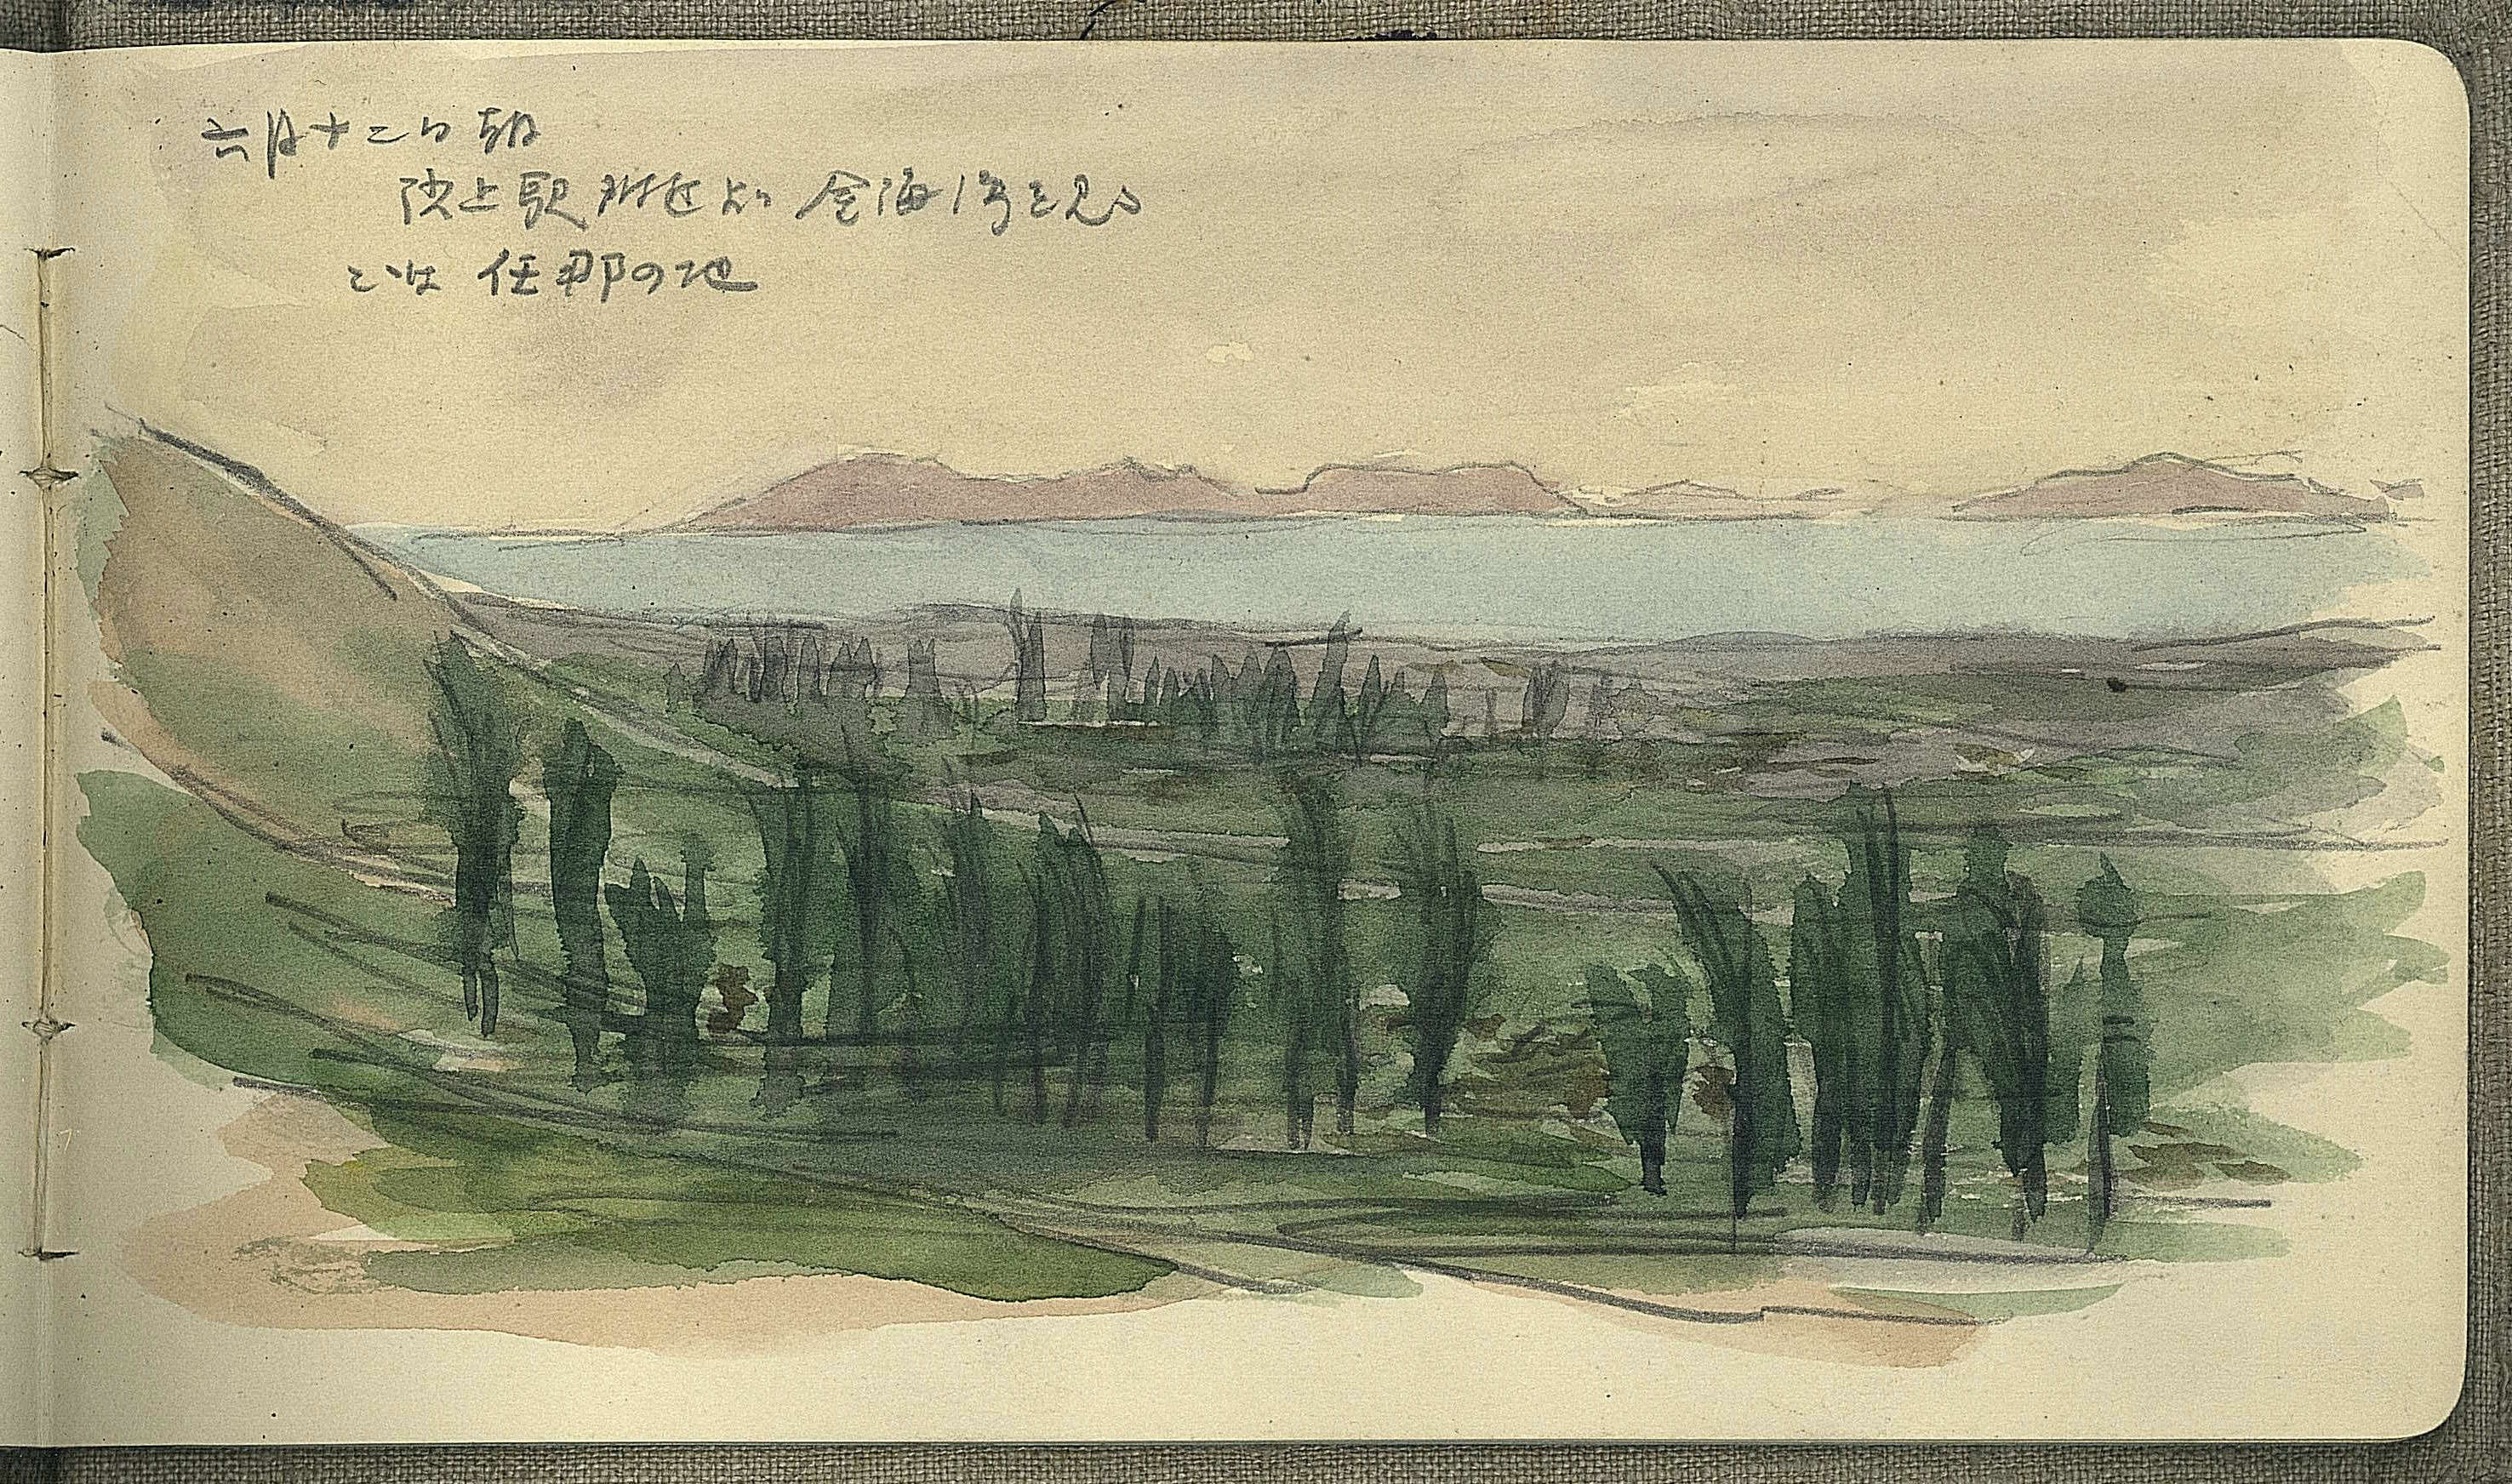 六月十二日 朝
沙上駅附近より 金海湾を見る
こゝは 任那の地